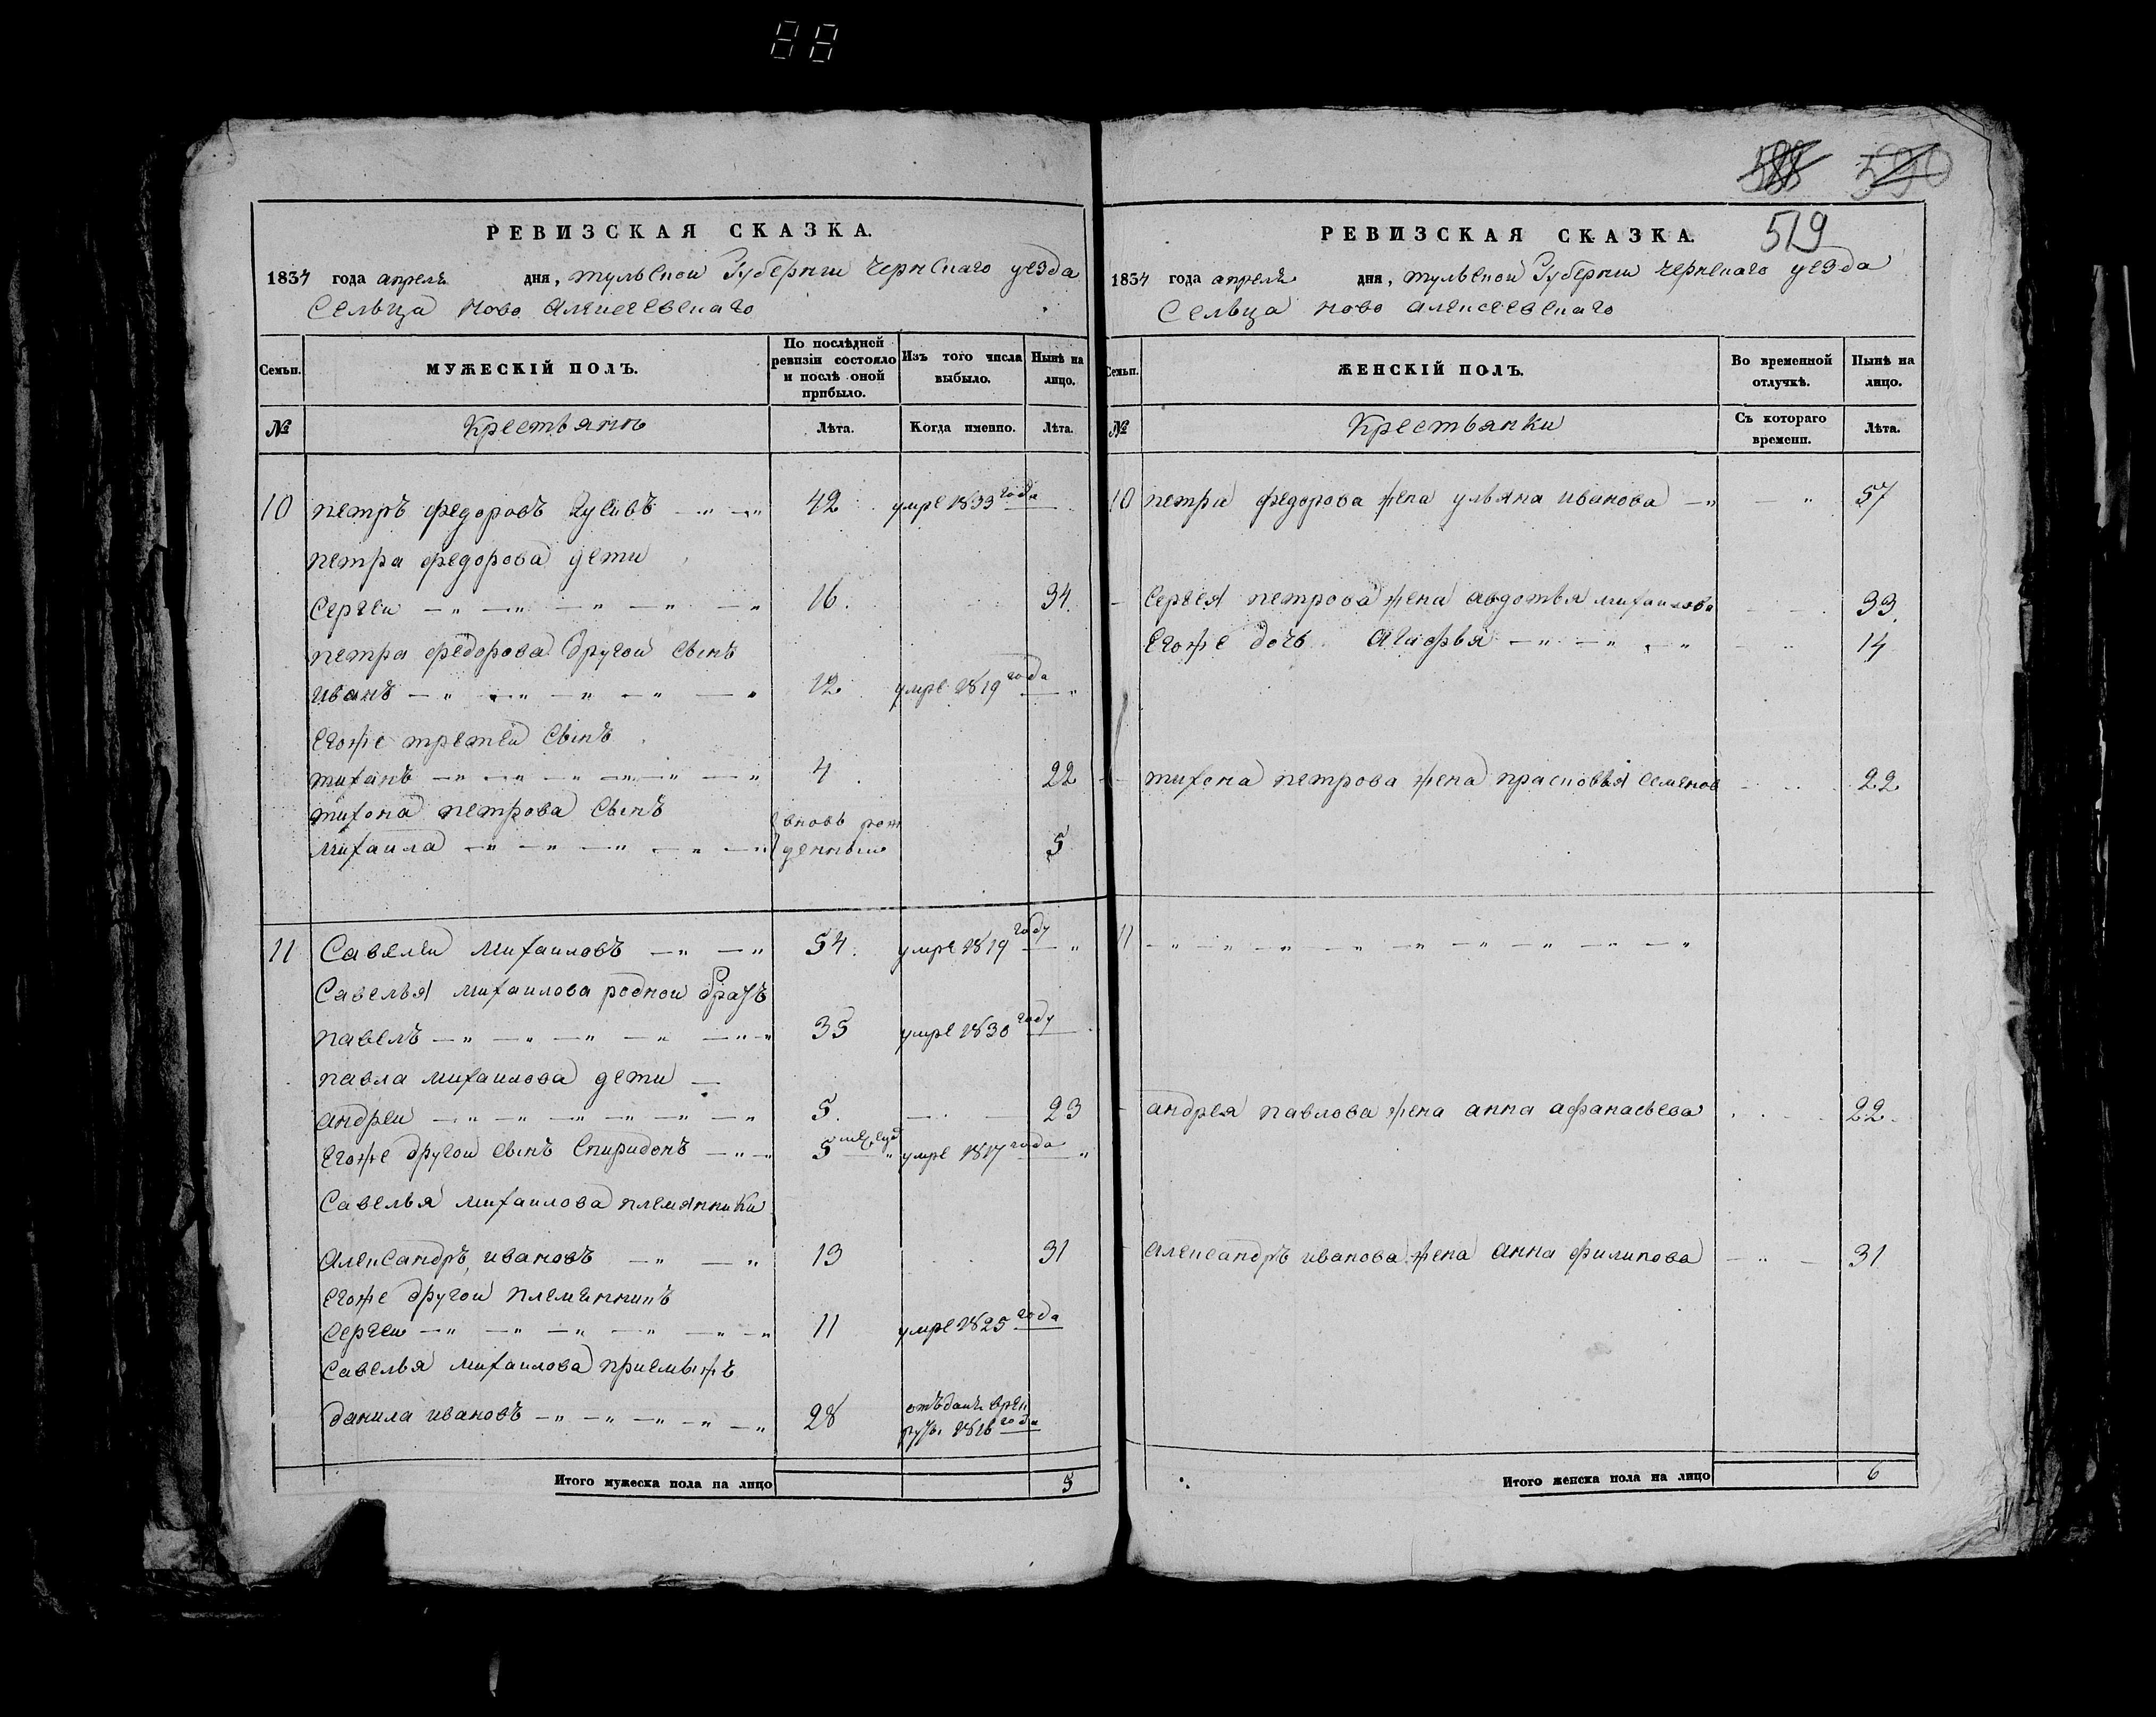 519
РЕВИЗСКАЯ СКАЗКА.
1834 года апреля дня, тульской Губернии чернскаго уезда
Сельца ново алексеевскаго
Семьи.
МУЖЕСКІЙ ПОЛЪ.
По послѣдней ревизіи состояло и послѣ оной прибыло.
Изъ того числа выбыло.
Нынѣ на лицо.
№
Крестьяне
Лѣта.
Когда именно.
Лѣта.
10 петръ федоровъ 42 умре 1833 года
петра федорова дети
Сергеи 16. 34.
петра федорова другои сынъ
иванъ 12 умре 1819 года
егоже третеи сынъ
тихонъ 4 22
тихона петрова сынъ
михаила вновь рож
денныи 5
11 Савелеи михаиловъ 54. умре 1819 году
Савелья михаилова роднои братъ
павелъ 35 умре 1830 году
павла михаилова дети
андреи 5. 23
егоже другои сынъ спиридонъ 5 умре 1817 года
Савелья михаилова племянники
александръ ивановъ 13 31
егоже другои племянникъ
Сергеи 11 умре 1825 года
Савелья михаилова приемыжъ
данила ивановъ 28 отъданъ врек
руты 1816 года
Итого мужеска пола на лицо 5
РЕВИЗСКАЯ СКАЗКА.
1834 года апреля дня, тульской Губернии чернскаго уезда
Сельца ново алексеевскаго
Семьи.
ЖЕНСКІЙ ПОЛЪ.
Во временной отлучкѣ.
Нынѣ на лицо.
№
Крестьянки
Съ котораго времени.
Лѣта.
10 петра федорова жена ульяна иванова 57
Сергея петрова жена авдотья михаилова 33.
егоже дочь агафья 14
тихона петрова жена прасковья семенов 22
11
андрея павлова жена анна афанасьева 22.
александръ иванова жена анна филипова 31
Итого женска пола на лицо 6